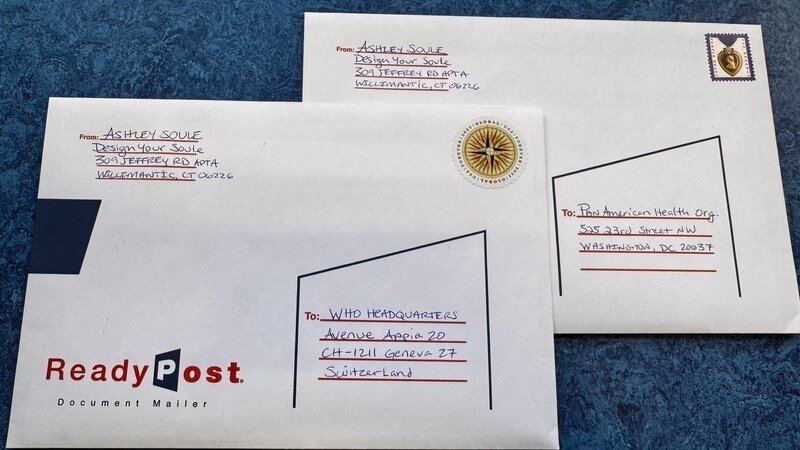 From: ASHLEY SOULE
Design Your Soule
309 JEFFREY RD APT A
WILLIMANTIC, CT 06226
To: PAN American Health Org.
525 23rd Street NW
WASHINGTON, DC 20037
From: ASHLEY SOULE
Design Your Soule
309 JEFFREY RD APT A
WILLIMANTIC, CT 06226
GLOBAL USA FOREVER
To: WHO HEADQUARTERS
Avenue Appia 20
CH-1211 Geneva 27
Switzerland
ReadyPost
Document Mailer